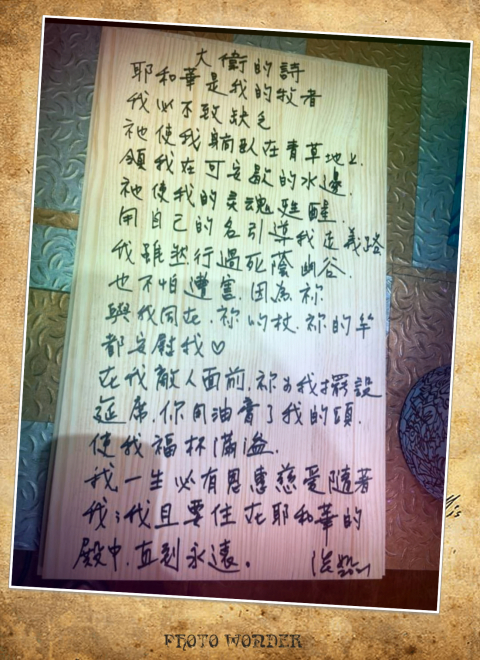 大衛的詩
耶和華是我的牧者
我必不致缺乏
祂使我躺臥在青草地上.
領我在可安歇的水邊.
祂使我的灵魂甦醒.
用自己的名引導我走義路
我雖然行過死蔭幽谷.
也不怕遭害.因為祢
與我同在.祢的杖.祢的竿
都安慰我♡
在我敵人面前.祢為我擺設
筵席.你用油膏了我的頭.
使我福杯滿溢.
我一生必有恩惠慈愛隨著
我;我且要住在耶和華的
殿中.直到永遠。
PHOTO WONDER